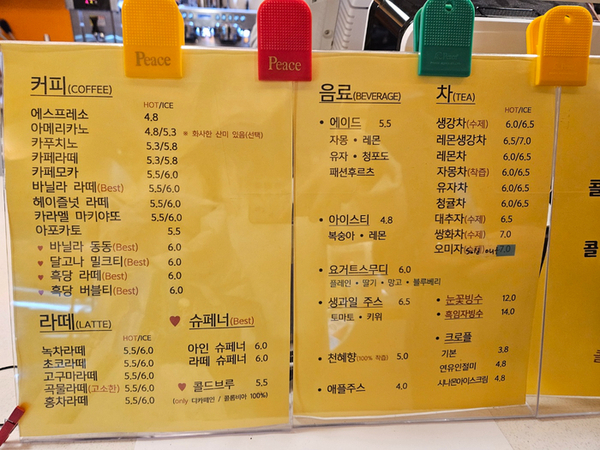 Peace
Peace
커피(COFFEE)
HOT/ICE
에스프레소 4.8
아메리카노 4.8/5.3 ※ 화사한 산미 있음(선택)
카푸치노 5.3/5.8
카페라떼 5.3/5.8
카페모카 5.5/6.0
바닐라 라떼(Best) 5.5/6.0
헤이즐넛 라떼 5.5/6.0
카라멜 마키야또 5.5/6.0
아포카토 5.5
♥ 바닐라 동동(Best) 6.0
♥ 달고나 밀크티(Best) 6.0
♥ 흑당 라떼(Best) 6.0
♥ 흑당 버블티(Best) 6.0
라떼(LATTE)
HOT/ICE
녹차라떼 5.5/6.0
초코라떼 5.5/6.0
고구마라떼 5.5/6.0
곡물라떼(고소한) 5.5/6.0
홍차라떼 5.5/6.0
♥ 슈페너(Best)
아인 슈페너 6.0
라떼 슈페너 6.0
♥ 콜드브루 5.5
(only 디카페인 / 콜롬비아 100%)
음료(BEVERAGE)
• 에이드 5.5
자몽 • 레몬
유자 • 청포도
패션후르츠
• 아이스티 4.8
복숭아 • 레몬
• 요거트스무디 6.0
플레인 • 딸기 • 망고 • 블루베리
• 생과일 주스 6.5
토마토 • 키위
• 천혜향(100% 착즙) 5.0
• 애플주스 4.0
차(TEA)
HOT/ICE
생강차(수제) 6.0/6.5
레몬생강차 6.5/7.0
레몬차 6.0/6.5
자몽차(착즙) 6.0/6.5
유자차 6.0/6.5
청귤차 6.0/6.5
대추차(수제) 6.5
쌍화차(수제) 7.0
오미자 7.0
• 눈꽃빙수 12.0
• 흑임자빙수 14.0
• 크로플
기본 3.8
연유인절미 4.8
시나몬아이스크림 4.8
콜